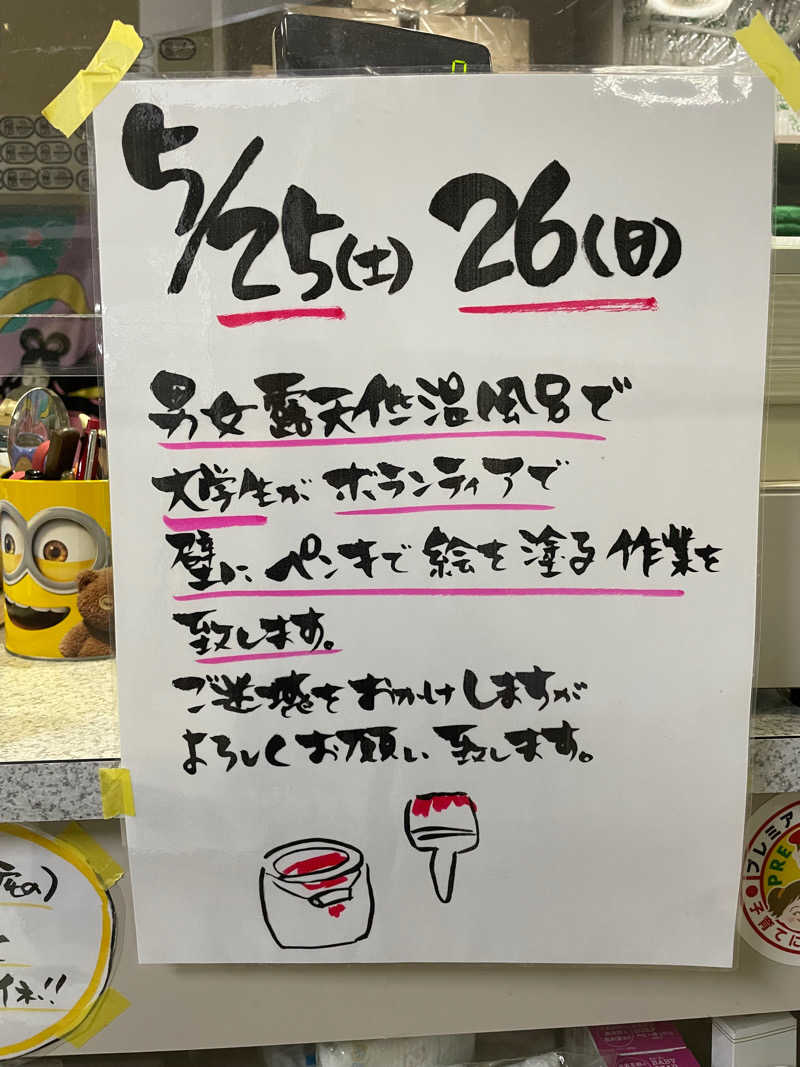 5/25(土) 26(日)
男女露天低温風呂で
大学生が ボランティアで
壁に ペンキで 絵を 塗る 作業を
致します。
ご迷惑を おかけしますが
よろしくお願い 致します。
プレミア
PRE
子育て
イネ!!
BABY